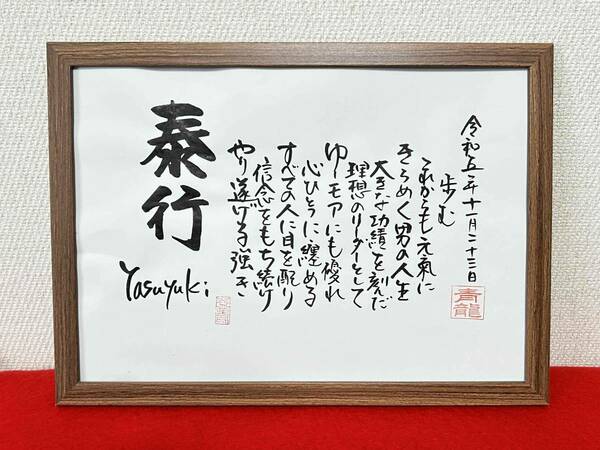 泰行
Yasuyuki
やり遂げる強き
信念をもち続け
すべての人に目を配り
心ひとつに纏める
ゆーモアにも優れ
理想のリーダーとして
大きな功績を刻んだ
きらめく男の人生
これからも元氣に
歩む
令和五年十一月二十三日
青龍